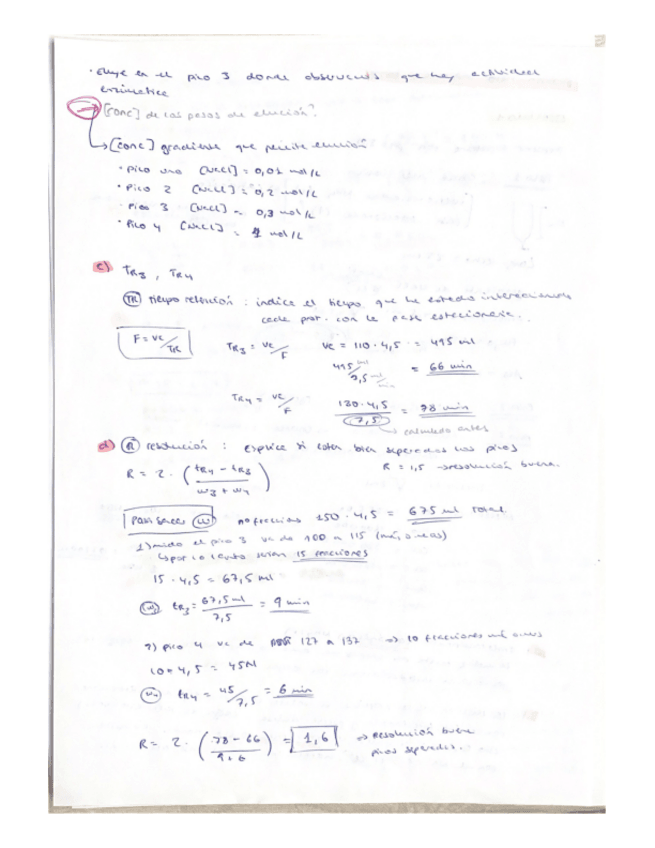 · eluye en el pico 3 donde observamos que hay actividad
enzimatica
[conc] de los pasos de elución?
↳ [conc] gradiente que permite elución
· Pico uno [NaCl] = 0,01 mol/L
· Pico 2 [NaCl] = 0,2 mol/L
· Pico 3 [NaCl] = 0,3 mol/L
· Pico 4 [NaCl] = 1 mol/L
c) TR3, TR4
(TR) tiempo retención : indica el tiempo que ha estado interaccionando
cada prot. con la fase estacionaria.
F = Ve/TR
TR3 = Ve/F Ve = 110 · 4,5 = 495 ml
495 ml / 7,5 ml/min = 66 min
TR4 = Ve/F 130 · 4,5 / 7,5 = 78 min
→ calculado antes
d) (R) resolución : explica si están bien separados los picos
R = 2 · (tR4 - tR3 / w3 + w4) R = 1,5 → resolución buena.
Para sacar (w) nº fracciones 150 · 4,5 = 675 ml total
1) mido el pico 3 va de 100 a 115 (más o menos)
↳ por lo tanto serían 15 fracciones
15 · 4,5 = 67,5 ml
(w3) tR3 = 67,5 ml / 7,5 = 9 min
2) pico 4 va de 127 a 137 → 10 fracciones más o menos
10 · 4,5 = 45 ml
(w4) tR4 = 45/7,5 = 6 min
R = 2 · (78 - 66 / 9 + 6) = 1,6 → Resolución buena
picos separados.